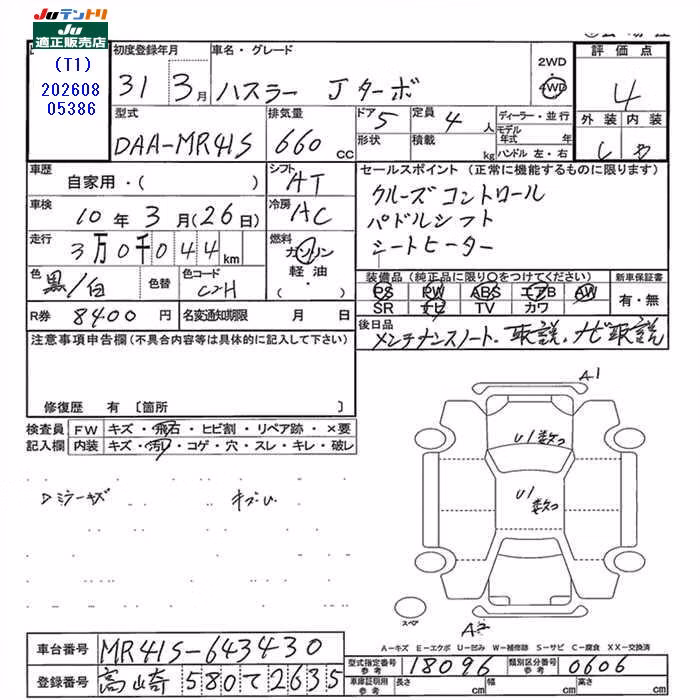 JUテントリ
JU
適正販売店
(T1)
202608
05386
初度登録年月 31 3月
車名・グレード ハスラー Jターボ
2WD
4WD
評価点
4
外装 内装
型式 DAA-MR41S
排気量 660 CC
ドア 5
形状
定員 4 人
積載 kg
ディーラー・並行
モデル年式 年
ハンドル 左・右
車歴 自家用・( )
シフト AT
車検 10年3月(26日)
冷房 AC
走行 3万0千044km
燃料 ガソリン
軽油
・( )
色 黒/白 色替
色コード C2H
R券 8400 円 名変通知期限 月 日
セールスポイント (正常に機能するものに限ります)
クルーズコントロール
パドルシフト
シートヒーター
装備品(純正品に限り○をつけてください)
PS PW ABS エアB AW
SR ナビ TV カワ
新車保証書
有・無
後日品
メンテナンスノート、取説、ナビ取説
注意事項申告欄(不具合内容等は具体的に記入して下さい)
修復歴 有 〔箇所 〕
検査員 FW キズ・飛石・ヒビ割・リペア跡・×要
記入欄 内装 キズ・汚れ・コゲ・穴・スレ・キレ・破レ
ミラーキズ キズ・U
A1
U1数つ
U1
数つ
スペア
A2
A−キズ E−エクボ U−凹み W−補修跡 S−サビ C−腐食 XX−交換済
車台番号 MR41S-643430
登録番号 高崎 580 て 2635
型式指定番号 参考 18096
類別区分番号 参考 0606
車庫証明用 参考 長さ cm 幅 cm 高さ cm